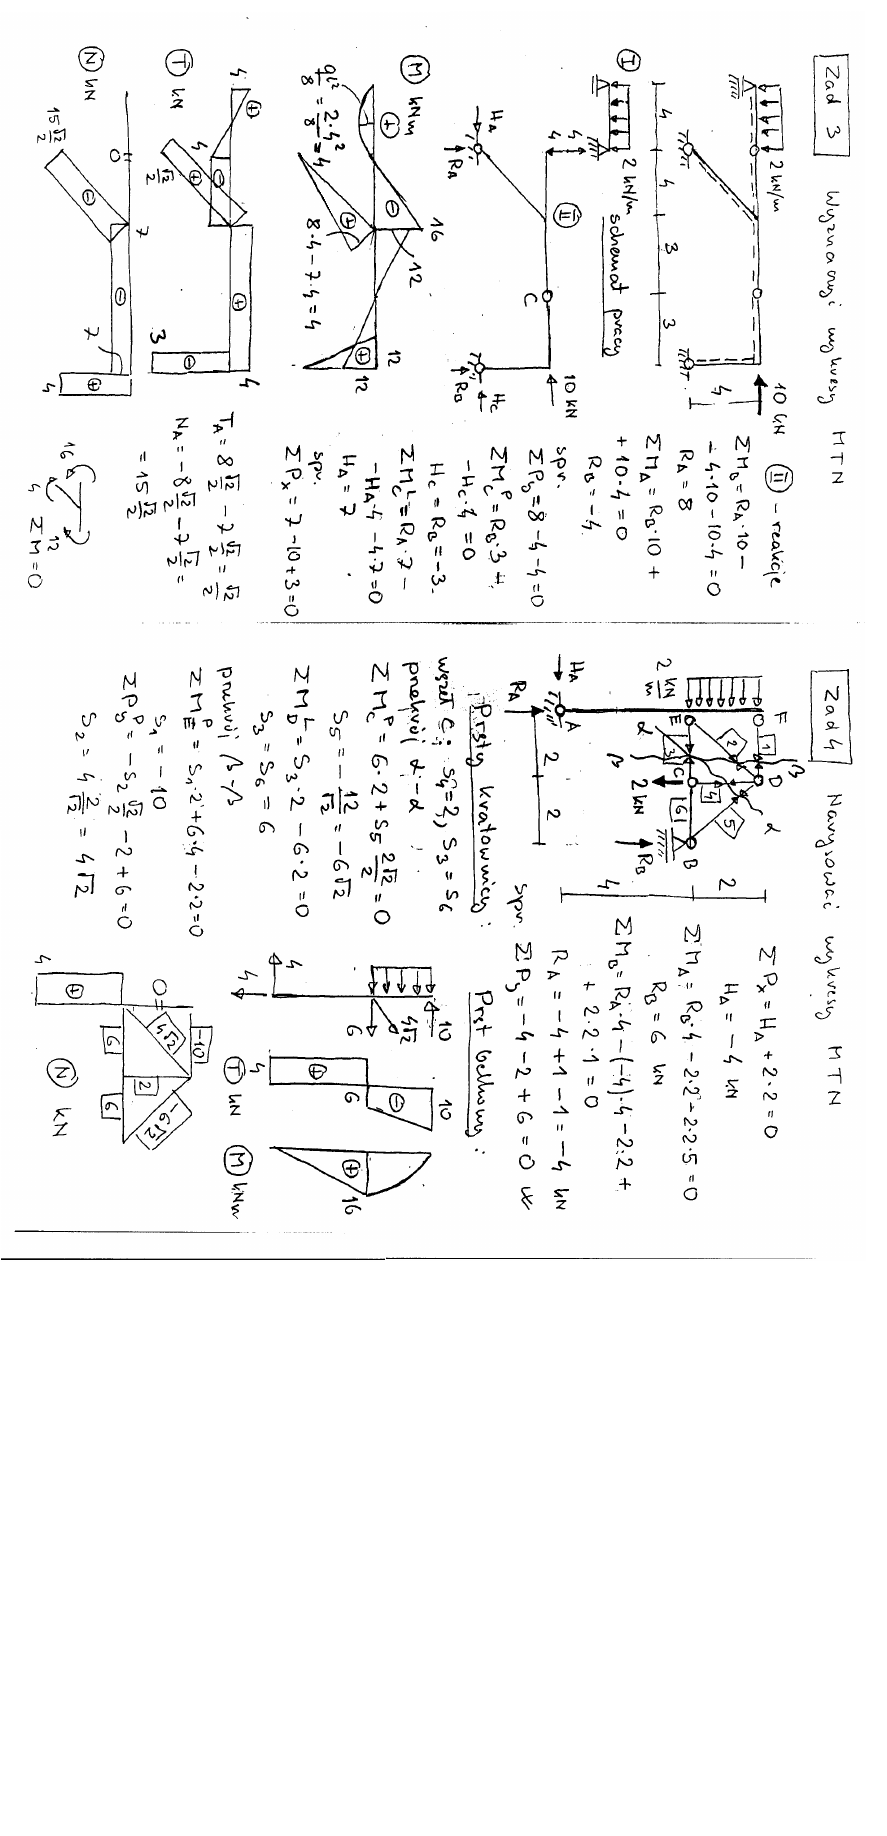 Zad 3 Wyznaczyć wykresy MTN
2 kN/m
10 kN
4
4
3
3
4
I
2 kN/m
schemat pracy
4
4
II
C
10 kN
H_A
R_A
H_C
R_B
II - reakcje
ΣM_B = R_A·10 -
- 4·10 - 10·4 = 0
R_A = 8
ΣM_A = R_B·10 +
+ 10·4 = 0
R_B = -4
spr.
ΣP_y = 8 - 4 - 4 = 0
ΣM_C^P = R_B·3 +
- H_C·4 = 0
H_C = R_B = -3
ΣM_C^L = R_A·7 -
- H_A·4 - 4·7 = 0
H_A = 7
spr.
ΣP_x = 7 - 10 + 3 = 0
M kNm
ql²/8 = 2·4²/8 = 4
16
12
8·4 - 7·4 = 4
12
12
T kN
4
4
√2/2
3
4
T_A = 8 √2/2 - 7 √2/2 = √2/2
N_A = -8 √2/2 - 7 √2/2 =
= 15 √2/2
N kN
15 √2/2
0
7
7
4
16
4
12
ΣM = 0
Zad 4 Narysować wykresy MTN
F
1
D
2 kN/m
E
2
3
C
4
5
6
B
α
α
β
β
2 kN
R_B
H_A
A
R_A
2
2
4
2
ΣP_x = H_A + 2·2 = 0
H_A = -4 kN
ΣM_A = R_B·4 - 2·2 - 2·2·5 = 0
R_B = 6 kN
ΣM_B = R_A·4 - (-4)·4 - 2·2 +
+ 2·2·1 = 0
R_A = -4 + 1 - 1 = -4 kN
spr. ΣP_y = -4 - 2 + 6 = 0
Pręty kratownicy:
węzeł C: S_4 = 2, S_3 = S_6
przekrój α-α
ΣM_C^P = 6·2 + S_5 2√2/2 = 0
S_5 = -12/√2 = -6√2
ΣM_D^L = S_3·2 - 6·2 = 0
S_3 = S_6 = 6
przekrój β-β
ΣM_E^P = S_1·2 + 6·4 - 2·2 = 0
S_1 = -10
ΣP_y^P = -S_2 √2/2 - 2 + 6 = 0
S_2 = 4 2/√2 = 4√2
Pręt belkowy:
10
4√2
6
4
4
T kN
10
6
4
M kNm
16
N kN
-10
0 =
4√2
2
-6√2
6
6
4